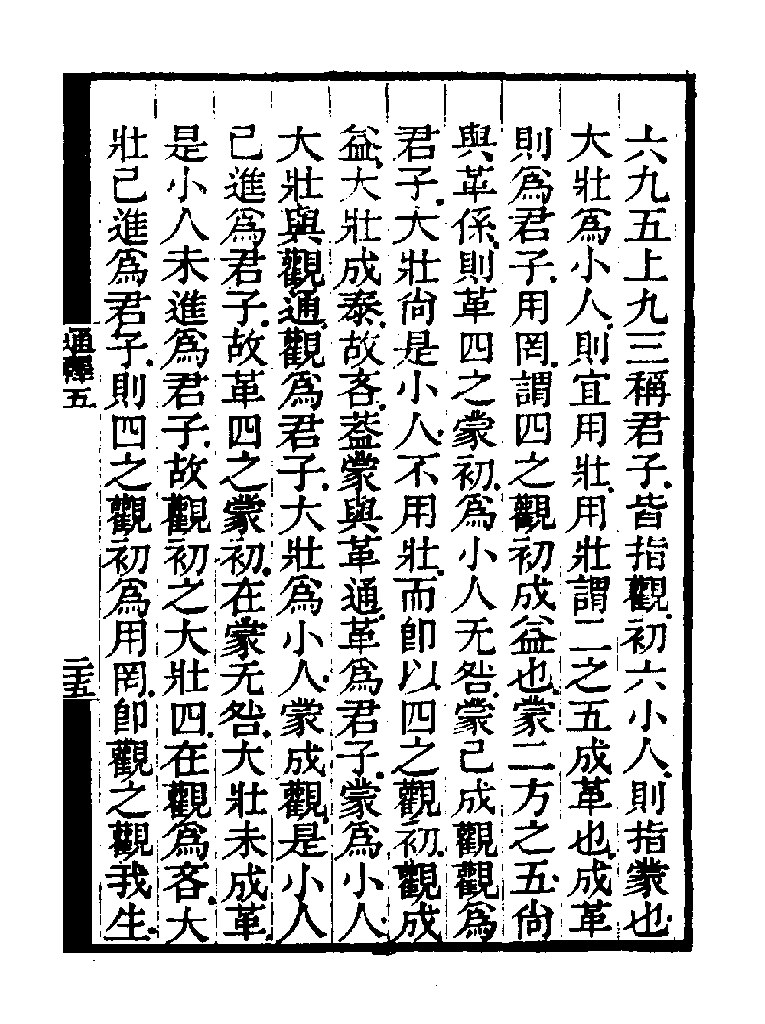 六九五上九三稱君子皆指觀初六小人則指蒙也
大壯爲小人則宜用壯用壯謂二之五成革也成革
則爲君子用罔謂四之觀初成益也蒙二方之五尙
與革係則革四之蒙初爲小人无咎蒙已成觀觀爲
君子大壯尙是小人不用壯而卽以四之觀初觀成
益大壯成泰故吝葢蒙與革通革爲君子蒙爲小人
大壯與觀通觀爲君子大壯爲小人蒙成觀是小人
已進爲君子故革四之蒙初在蒙无咎大壯未成革
是小人未進爲君子故觀初之大壯四在觀爲吝大
壯已進爲君子則四之觀初爲用罔卽觀之觀我生
通釋五
二十五